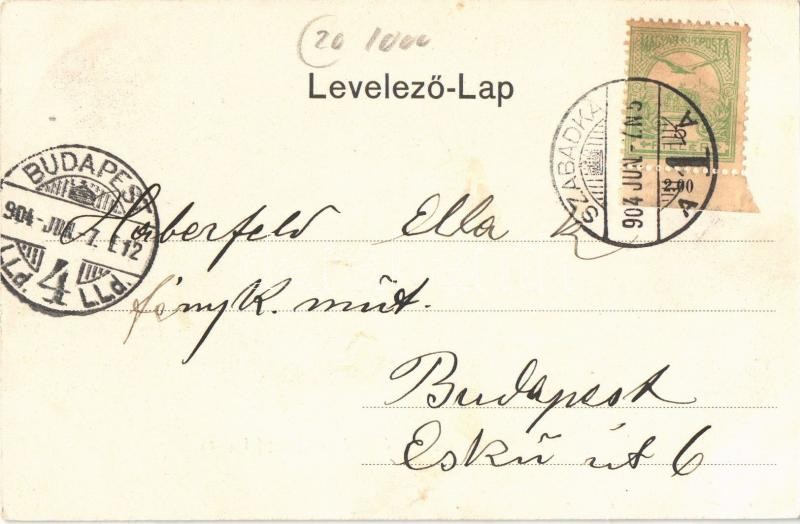 20 1000
Levelező-Lap
MAGYAR KIR. POSTA
SZABADKA
904 JUN
2.00
BUDAPEST
904 - JUN - 7. E12
4
Haberfeld Ella k
fényk. műt.
Budapest
Eskü út 6